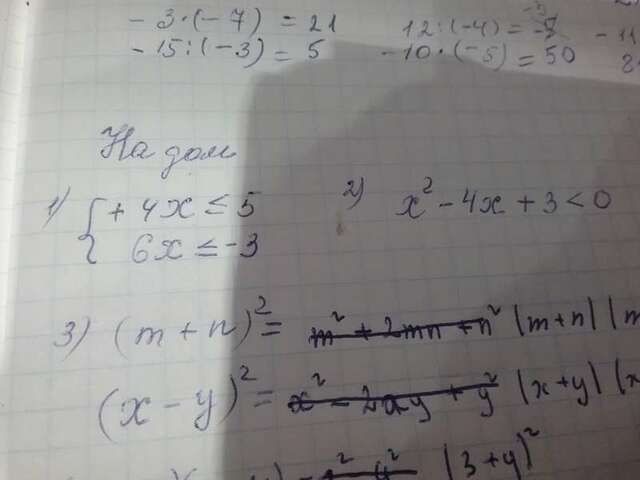 - 3·(-7) = 21 12:(-4) = -11
-15:(-3) = 5 -10·(-5) = 50
На дом
1) { + 4x ≤ 5 2) x² - 4x + 3 < 0
6x ≤ -3
3) (m + n)² = m² + 2mn + n² (m+n) (m
(x - y)² = x² - 2xy + y² (x+y) (x
(3+y)²